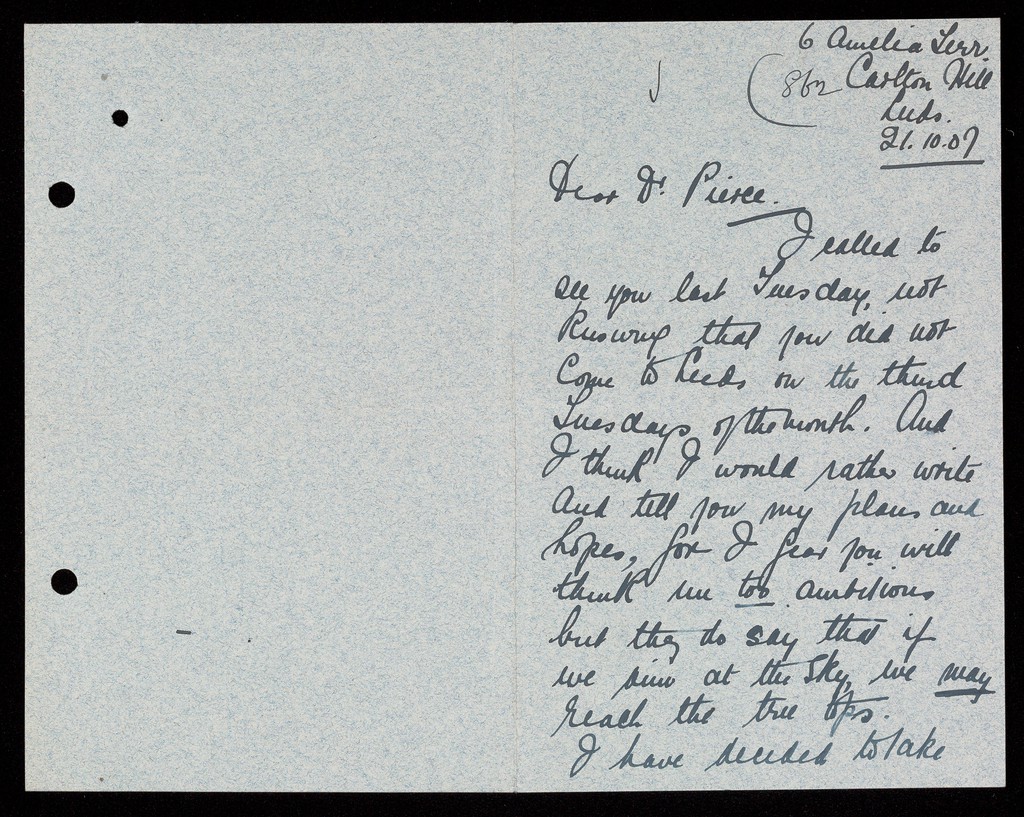 6 Amelia Terr
862 Carlton Hill
Leeds.
21.10.07
Dear Dr. Pierce.
I called to
see you last Tuesday, not
knowing that you did not
Come to Leeds on the third
Tuesdays of the month. And
I think I would rather write
And tell you my plans and
hopes, for I fear you will
think me too ambitious
but they do say that if
we aim at the sky, we may
reach the tree tops.
I have decided to take